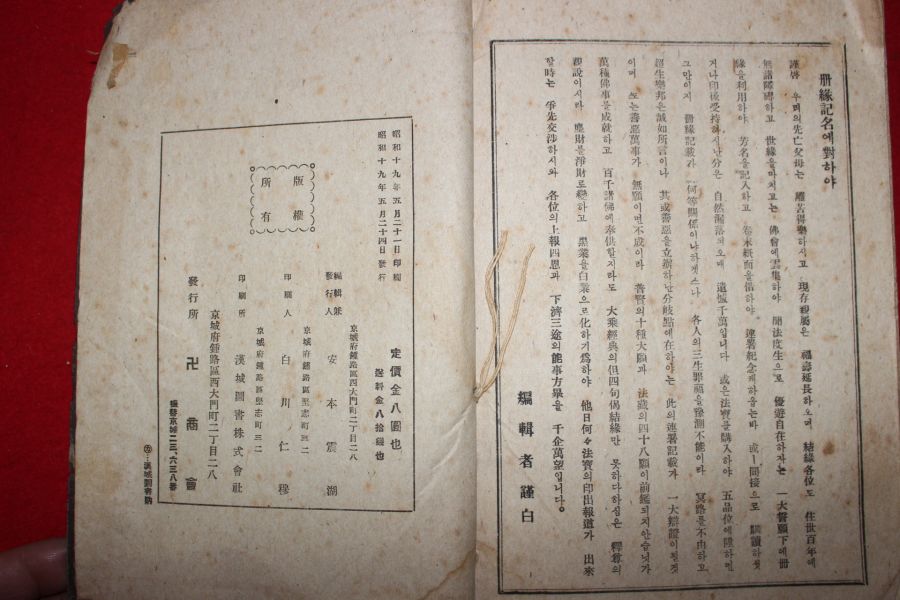 册緣記名에對하야
謹啓 우리의先亡父母는 離苦得樂하시고 現存親屬은 福壽延長하오며 結緣各位도 住世百年에
無諸障碍하고 世緣을마치고는 佛會에雲集하야 聞法度生으로 優遊自在하자는 一大誓願下에冊
緣을利用하야 芳名을記入하고 卷末紙面을借하야 連署紀念케하옵는바 或ㅣ間接으로 購讀하섯
거나印後受持하시난分은 自然漏落되오매 遺憾千萬입니다 或은法寶를購入하야 五品位에陞하면
그만이지 冊緣記載가 何等關係이냐하겟스나 各人의三生罪福을豫測不能이라 冥路를不由하고
超生樂邦은誠如所言이나 其或善惡을立辦하난分岐點에在하야는 此의連署記載가 一大辯證이될것
이며 또는善惡萬事가 無願이면不成이라 普賢의十種大願과 法藏의四十八願이前鑑되지안슴닛가
萬種佛事를成就하고 百千諸佛에奉供할지라도 大乘經典의但四句偈結緣만 못하다하심은 釋尊의
親說이시라 塵財를淨財로變하고 黑業을白業으로化하기爲하야 他日何々法寶의印出報道가 出來
할時는 爭先交涉하시와 各位의上報四恩과 下濟三途의能事方畢을 千企萬望입니다。
編輯者謹白
昭和十九年五月二十一日印刷
昭和十九年五月二十四日發行
版權
所有
定價金八圓也
送料金八拾錢也
京城府鍾路區西大門町二丁目二八
編輯兼
發行人 安本震湖
京城府鍾路區堅志町三二
印刷人 白川仁穆
京城府鍾路區堅志町三二
印刷所 漢城圖書株式會社
京城府鍾路區西大門町二丁目二八
發行所 卍商會
振替京城二三、六三八番
漢城圖書納